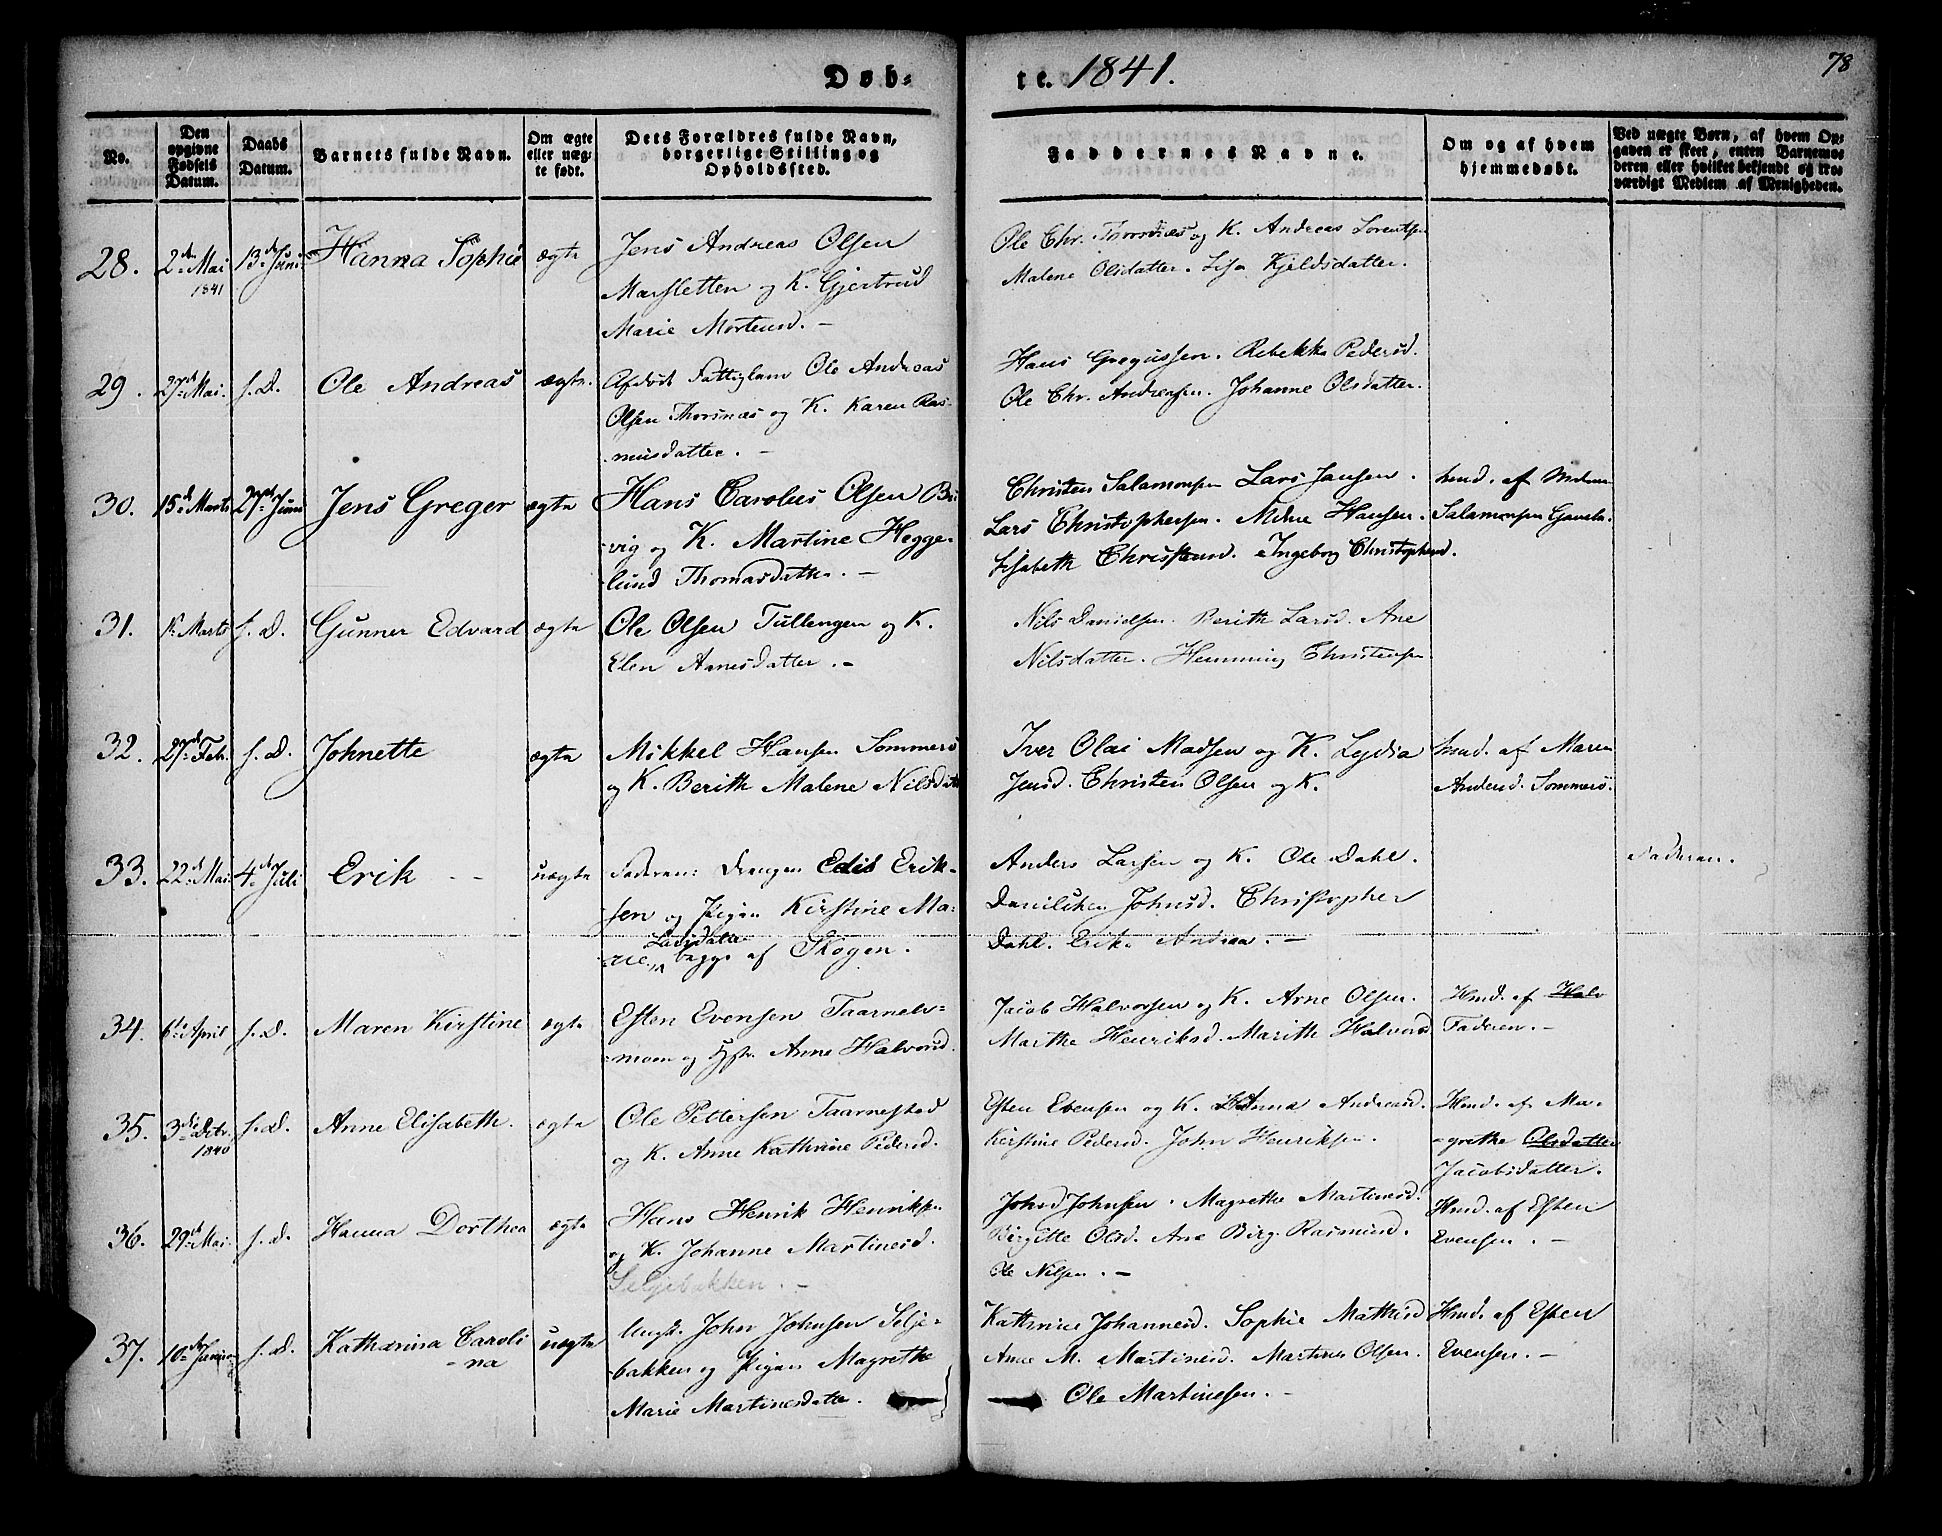 Døb-
te. 1841.
78
No.
Den opgivne Fødsels Datum.
Daabs Datum.
Barnets fulde Navn.
Om ægte eller uægte født.
Dets Forældres fulde Navn, borgerlige Stilling og Opholdssted.
Faddernes Navne.
Om og af hvem hjemmedøbt.
Ved uægte Børn, af hvem Opgaven er skeet, enten Barnemoderen eller hvilket bekjendt og troværdigt Medlem af Menigheden.
28. 2de Mai 1841 13de Juni Hanna Sophie ægte
Jens Andreas Olsen
Marsletten og K. Gjertrud
Marie Mortensd. -
Ole Chr. Thorsnæs og K. Andreas Lorentsen
Malene Olsdatter. Lisa Kjeldsdatter.
29. 27de Mai. s. D. Ole Andreas ægte.
Afdøde Fattiglem Ole Andreas
Olsen Thorsnæs og K. Karen Ras-
musdatter. -
Hans Gregussen. Rebekka Pedersd.
Ole Chr. Andreasen. Johanne Olsdatter.
30. 15de Marts 27de Juni Jens Greger ægte
Hans Carolus Olsen
-vig og K. Martine Hegge-
lund Thomasdatter. -
Christen Salamonsen Lars Jansen.
Lars Christophersen. Hansen.
Lisabeth Christensd. Ingeborg Christophersd.
hmd. af
Salamonsen
31. Marts s. D. Gunner Edvard ægte
Ole Olsen Tullengen og K.
Elen Arnesdatter. -
Nils Danielsen. Berith Larsd. Ane
Nilsdatter. Hemming Christensen
32. 27de Feb. s. D. Johnette ægte
Mikkel Hansen Sommersö
og K. Berith Malene Nilsdatter
Iver Olai Madsen og K. Lydia
Jensd. Christen Olsen og K.
hmd. af Maren
Andersd. Sommersö.
33. 22de Mai. 4de Juli Erik - - uægte
Faderen: Drengen Edis Erik-
sen og Pigen Kirstine Ma-
rie Larsdatter begge af Skogen.
Anders Larsen og K. Ole Dahl.
Johnsd. Christopher
Dahl. Erik Andrea. -
Faderen.
34. 6te April s. D. Maren Kirstine ægte
Esten Evensen Taarnels-
moen og Hstr. Anne Halvorsd.
Jacob Halvorsen og K. Arne Olsen.
Marthe Henriksd. Marith Halvorsd.
Hmd. af Halv
Faderen. -
35. 3die Octr. 1840 s. D. Anne Elisabeth. ægte
Ole Pettersen Taarnestad
og K. Anne Kathrine Pedersd.
Esten Evensen og K. Anna Andreasd.
Kirstine Pedersd. John Henriksen.
Hmd. af Ma-
-grethe Olsdatter
Jacobsdatter.
36. 29de Mai. s. d. Hanna Dorthea ægte
Hans Henrik Henriksen
og K. Johanne Martinesd.
Seljebakken. -
Johnsen. Magrethe Martinesd.
Birgitte Olsd. Ane Birg. Rasmusd.
Ole Nilsen. -
Hmd. af Esten
Evensen. -
37. 10de s. d. Katharina Caroli-
-na uægte
Ungk. John Johnsen Selje-
bakken og Pigen Magrethe
Marie Martinesdatter.
Kathrine Johannesd. Sophie Mathisd.
Anne M. Martinesd. Martinus Olsen.
Ole Martinessen. -
Hmd. af Esten
Evensen. -